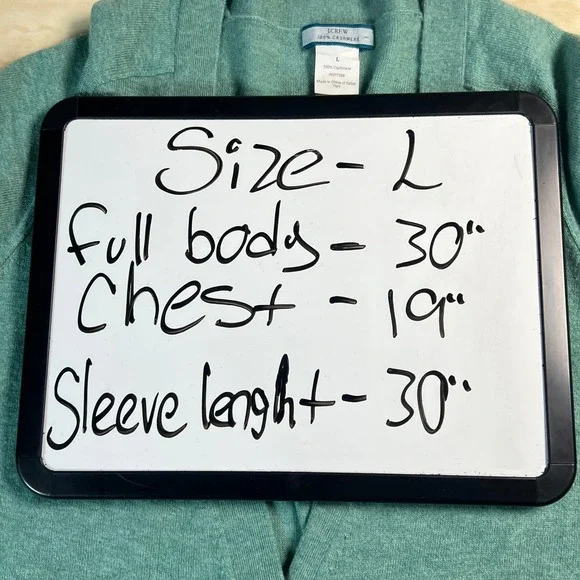 J.CREW
100% CASHMERE
L
100% Cashmere
Made in China of Italian
Yarn
Size - L
full body - 30"
Chest - 19"
Sleeve lenght - 30"